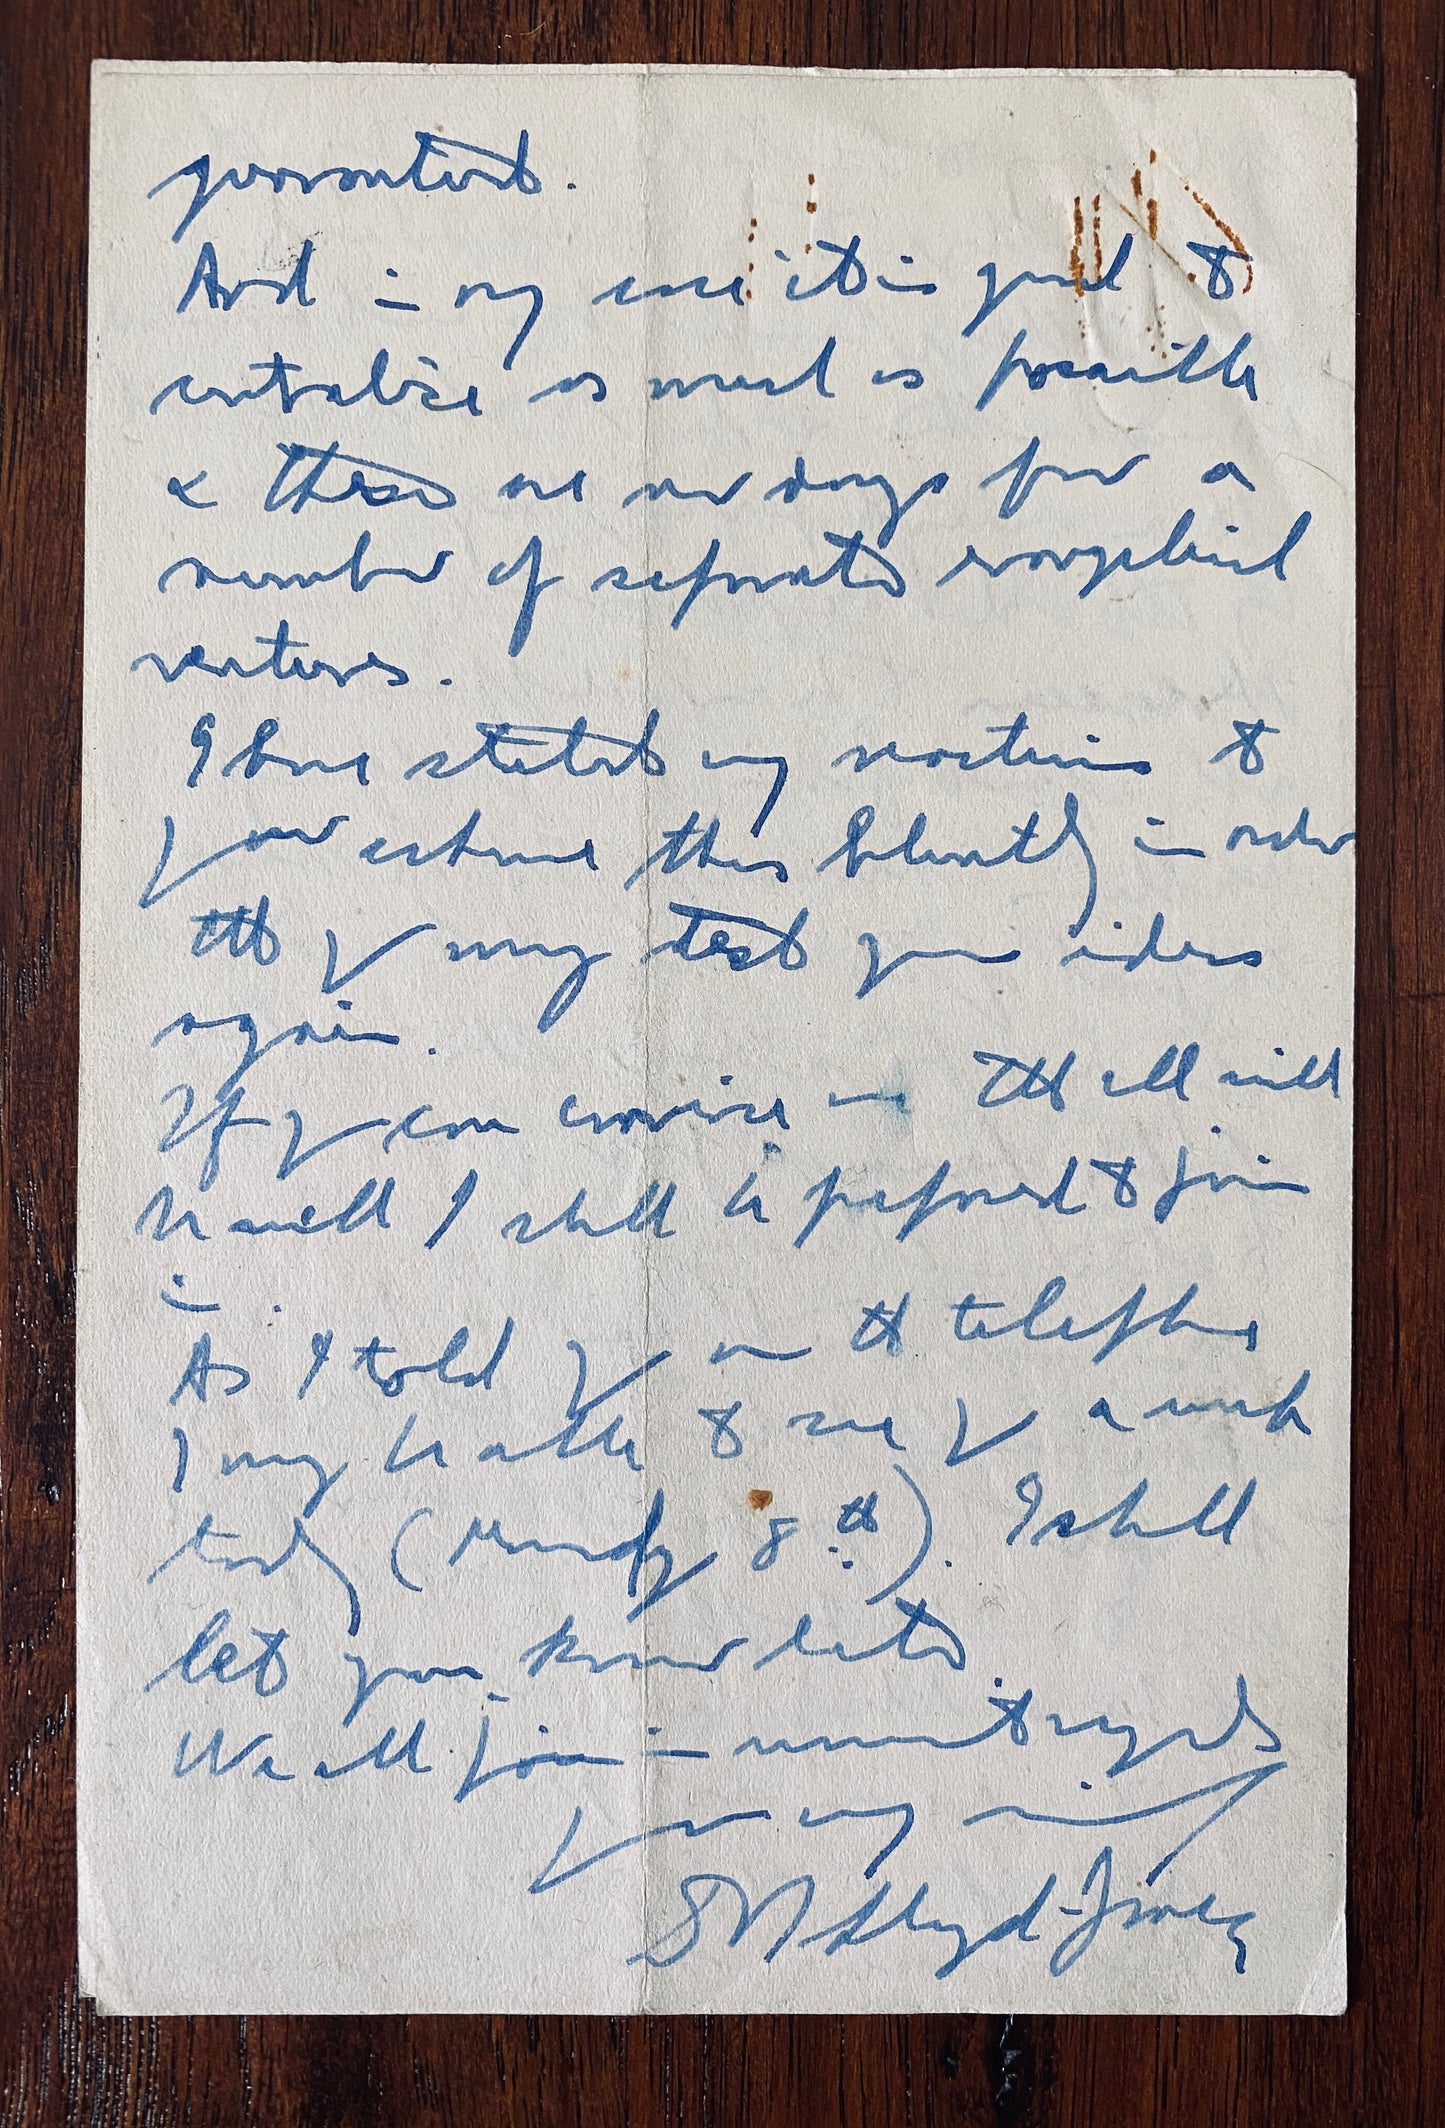 guaranteed.
And in any case it is good to
centralise as much as possible
& these are no days for a
number of separate evangelical
ventures.
I have stated my reactions to
your scheme thus bluntly in order
tht y may test your ideas
again.
If y can convince me tht all will
be well I shall be prepared to join
in.
As I told y on th telephone
I may be able to see y a week
today (Monday 8th). I shall
let you know later.
We all join in warmest regards
Yours very sincy
D M Lloyd-Jones